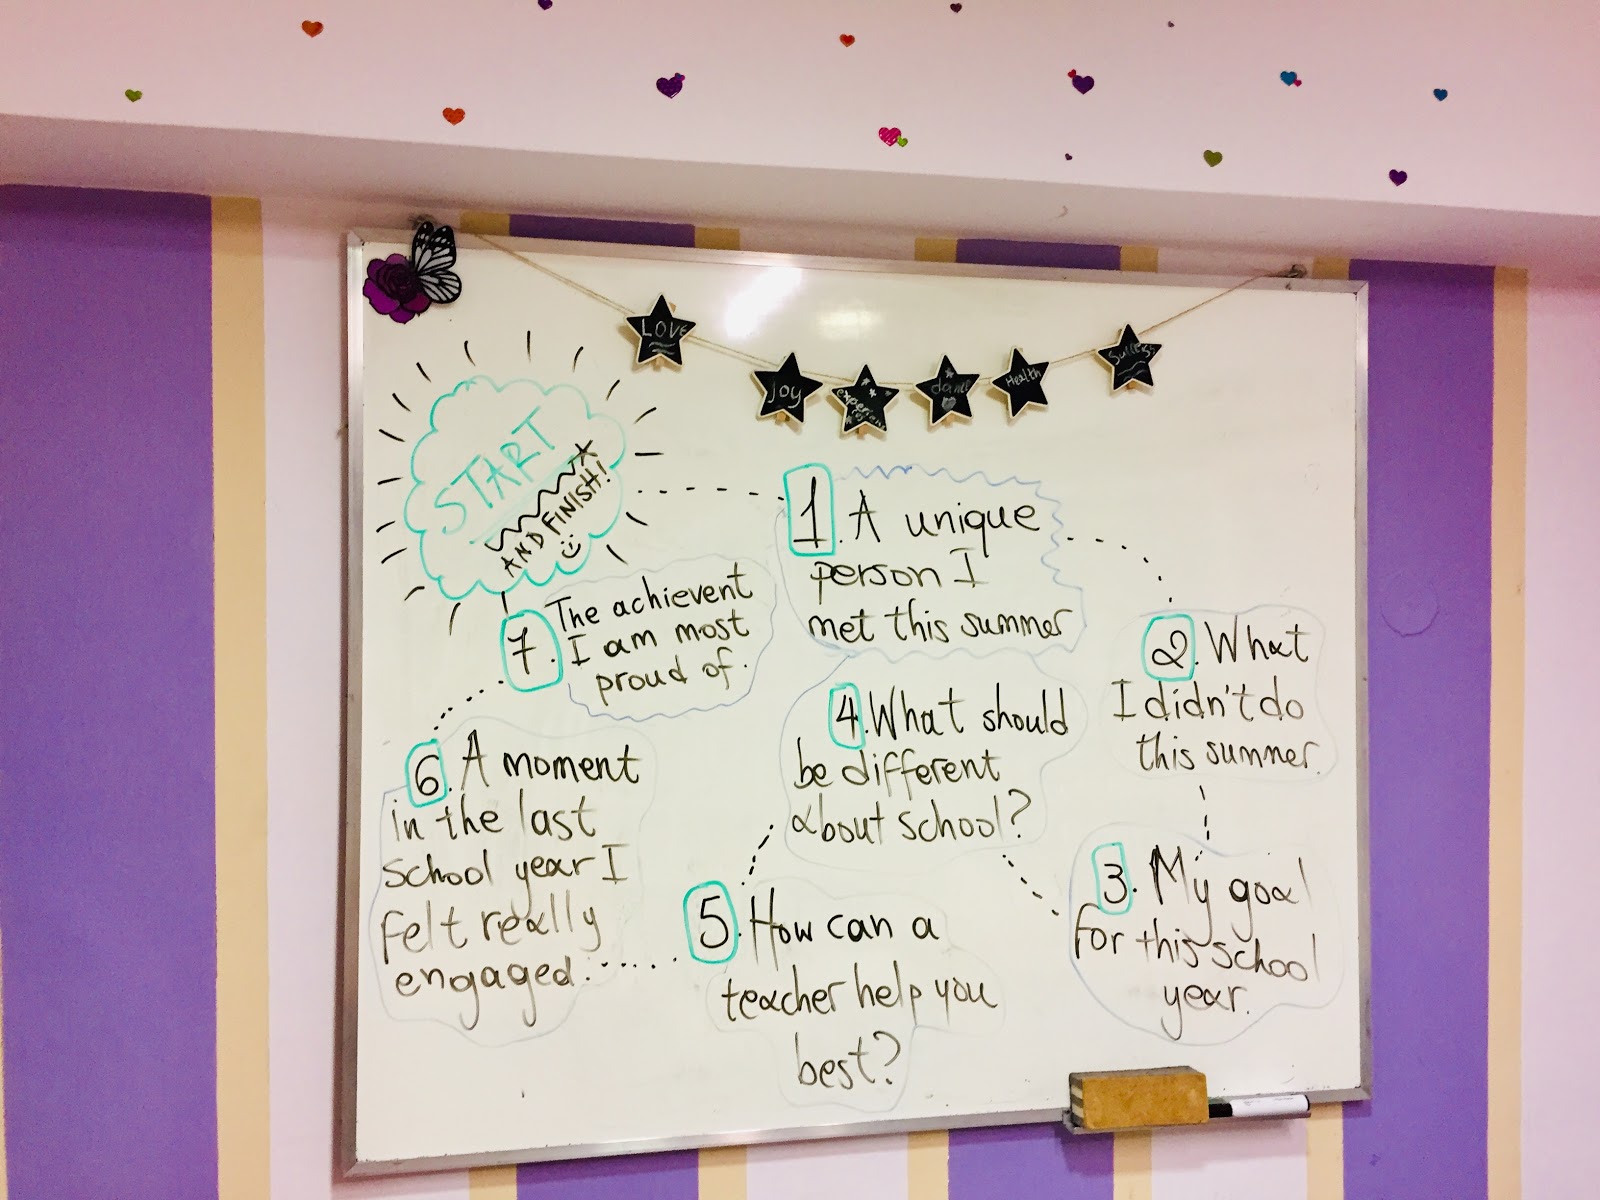 LOVE
Joy
experience
dance
Health
Success
START
AND FINISH!
1. A unique
person I
met this summer
2. What
I didn't do
this summer.
3. My goal
for this school
year.
4. What should
be different
about school?
5. How can a
teacher help you
best?
6. A moment
in the last
school year I
felt really
engaged.
7. The achievent
I am most
proud of.